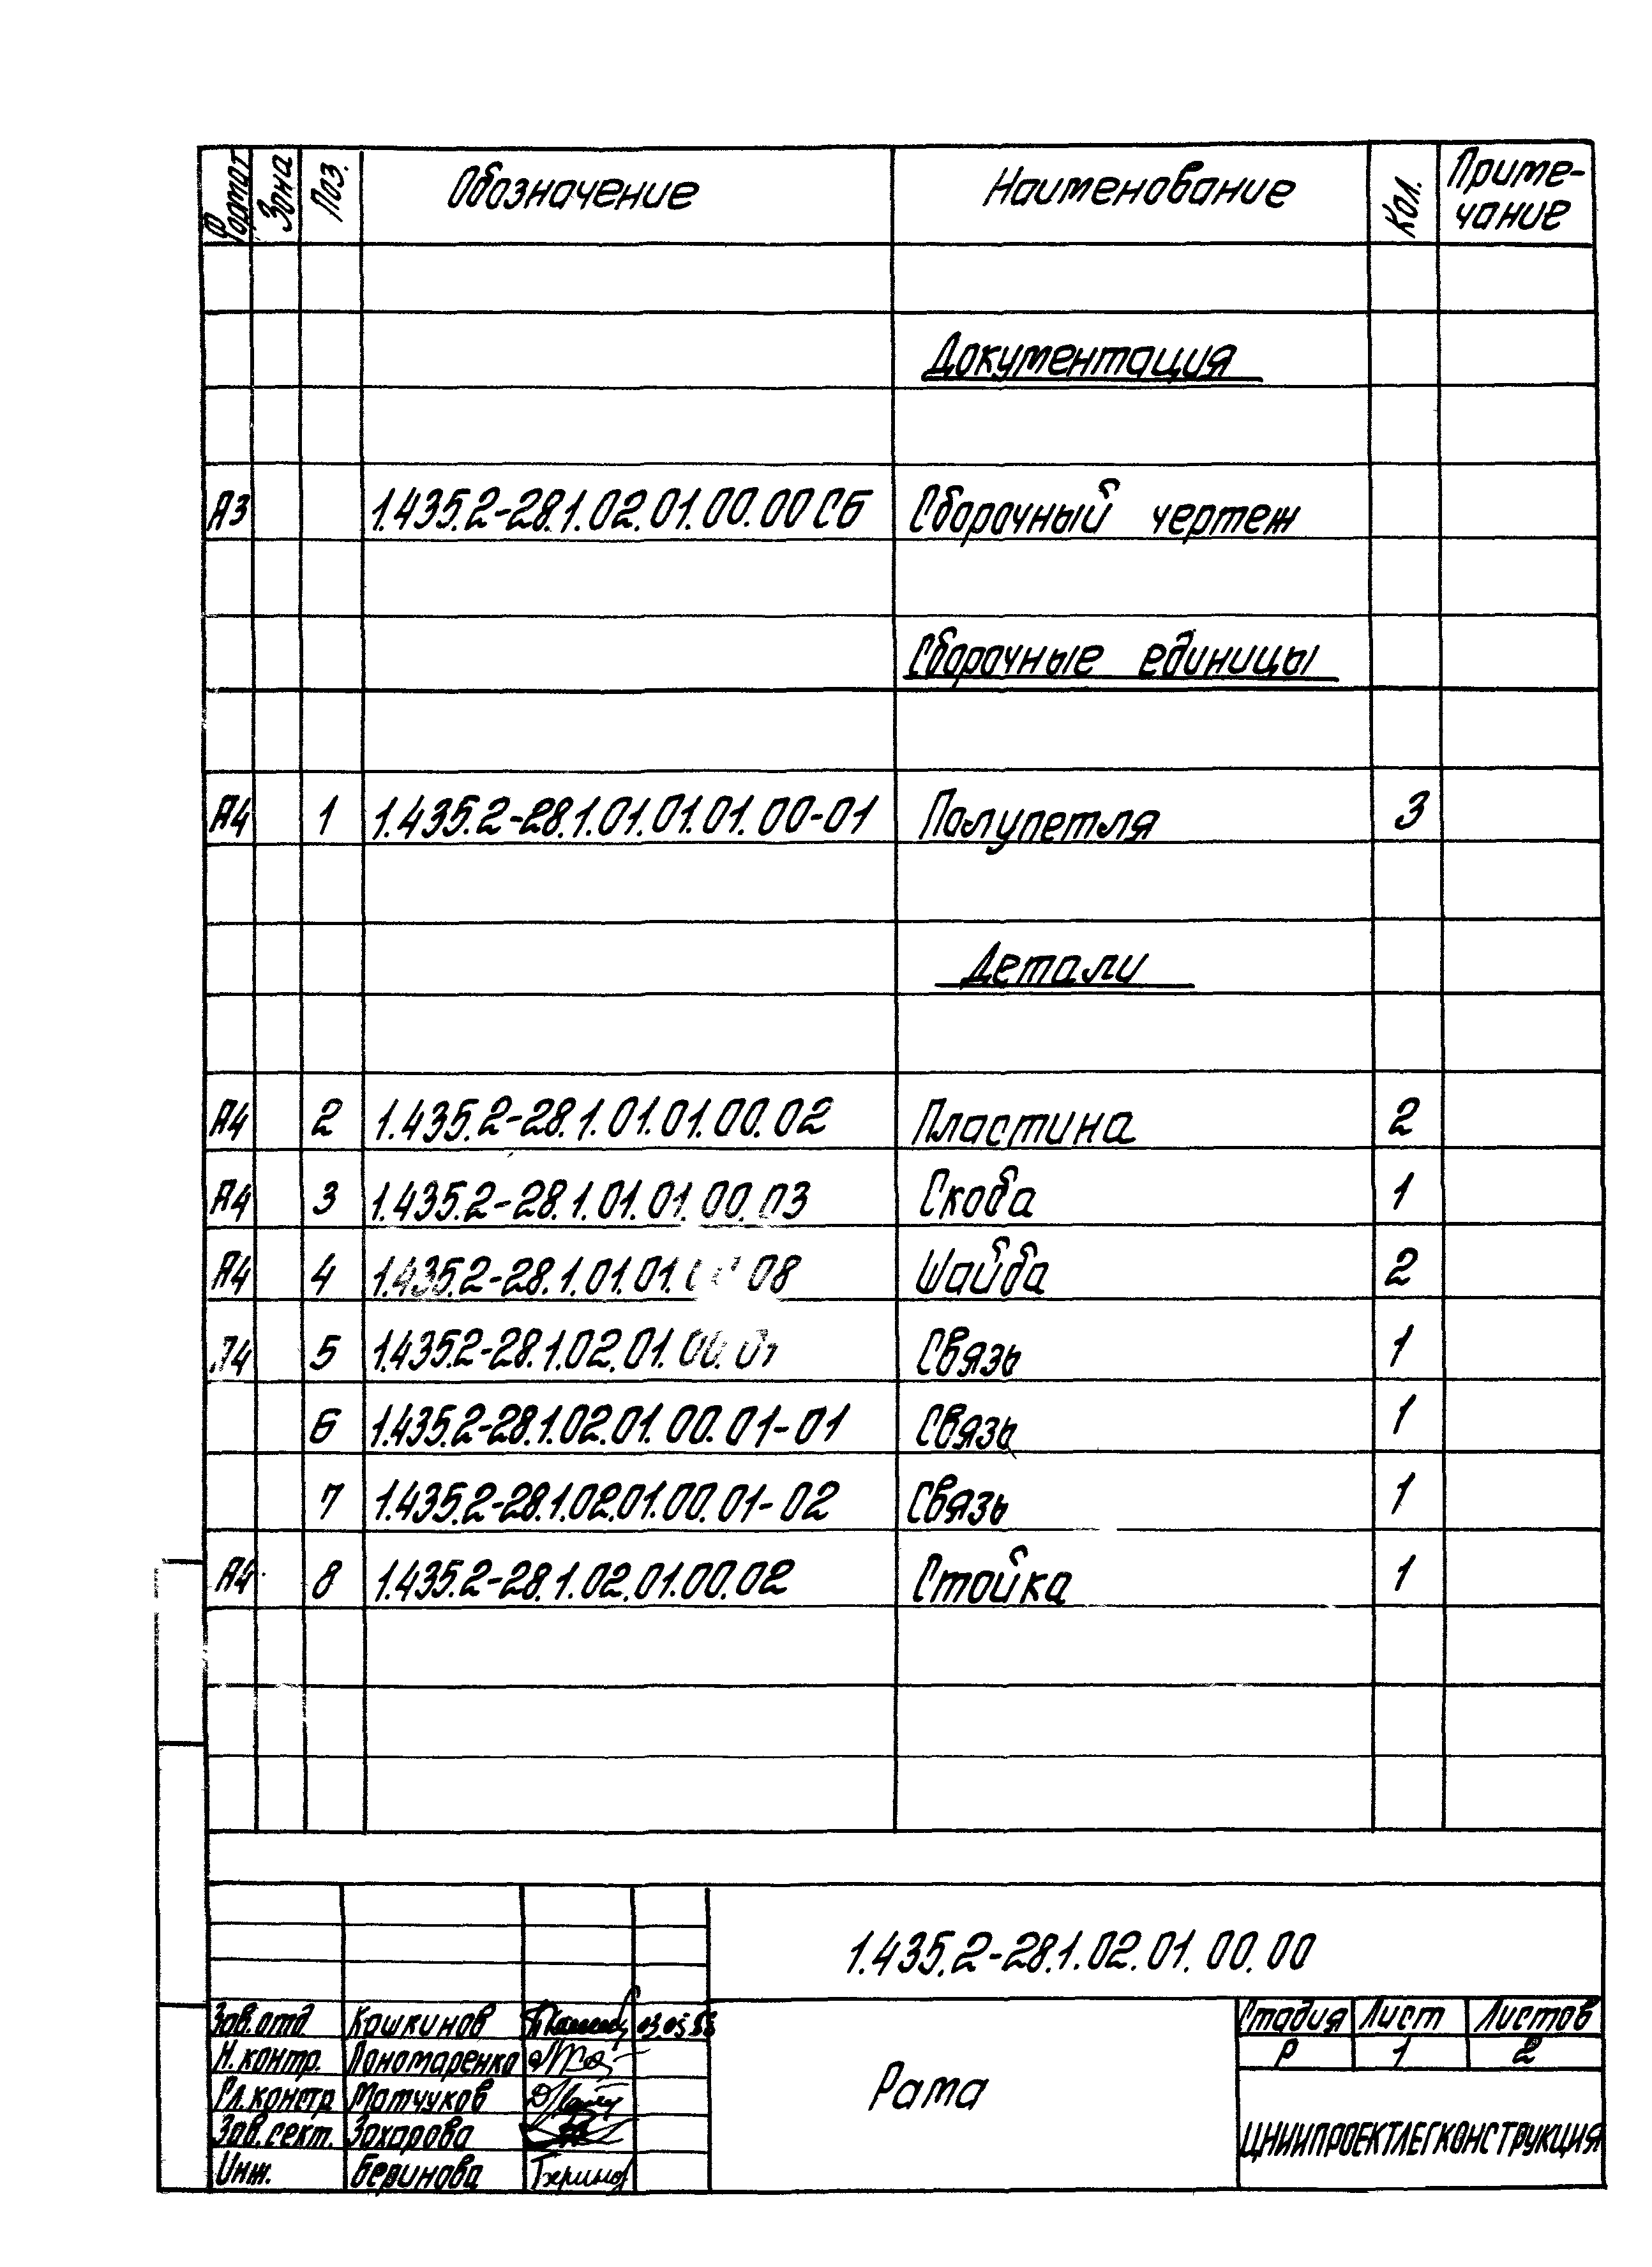 Формат Зона Поз. Обозначение Наименование Кол. Приме-
чание
Документация
А3 1.435.2-28.1.02.01.00.00 СБ Сборочный чертеж
Сборочные единицы
А4 1 1.435.2-28.1.01.01.01.00-01 Полупетля 3
Детали
А4 2 1.435.2-28.1.01.01.00.02 Пластина 2
А4 3 1.435.2-28.1.01.01.00.03 Скоба 1
А4 4 1.435.2-28.1.01.01.00.08 Шайба 2
А4 5 1.435.2-28.1.02.01.00.01 Связь 1
6 1.435.2-28.1.02.01.00.01-01 Связь 1
7 1.435.2-28.1.02.01.00.01-02 Связь 1
А4 8 1.435.2-28.1.02.01.00.02 Стойка 1
1.435.2-28.1.02.01.00.00
Зав.отд Кашкинов
Н.контр. Пономаренко
Гл.констр Матчуков
Зав.сект. Захарова
Инж. Беринова
Рама
Стадия Лист Листов
Р 1 2
ЦНИИПРОЕКТЛЕГКОНСТРУКЦИЯ